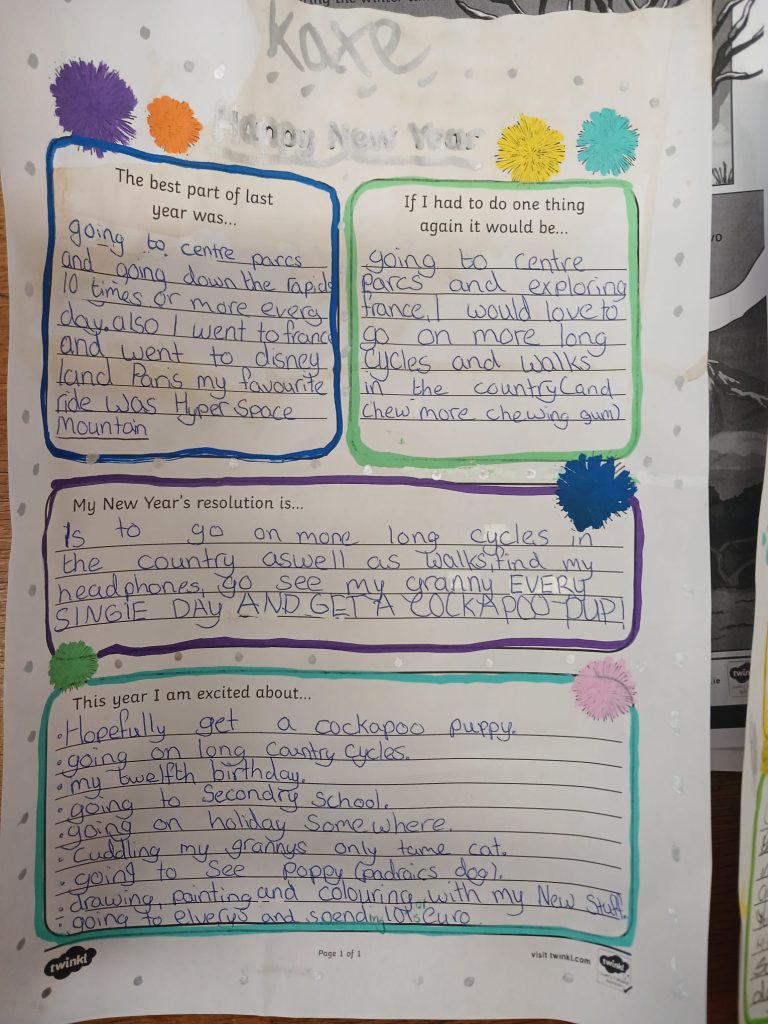 Kate
Happy New Year
The best part of last
year was...
going to centre parcs
and going down the rapids
10 times or more every
day. also I went to france
and went to disney
land Paris my favourite
ride was Hyper Space
Mountain
If I had to do one thing
again it would be...
going to centre
parcs and exploring
france, I would love to
go on more long
cycles and walks
in the country (and
chew more chewing gum)
My New Year's resolution is...
Is to go on more long cycles in
the country aswell as walks, find my
headphones, go see my granny EVERY
SINGlE DAY AND GET A COCKAPOO PUP!
This year I am excited about...
· Hopefully get a cockapoo puppy.
· going on long country cycles.
· my twelfth birthday.
· going to Secondry School.
· going on holiday Somewhere.
· Cuddling my grannys only tame cat.
· going to See poppy (padraics dog).
· drawing, painting and colouring with my New Stuff.
· going to elverys and spending lots of euro
twinkl
Page 1 of 1
visit twinkl.com
twinkl